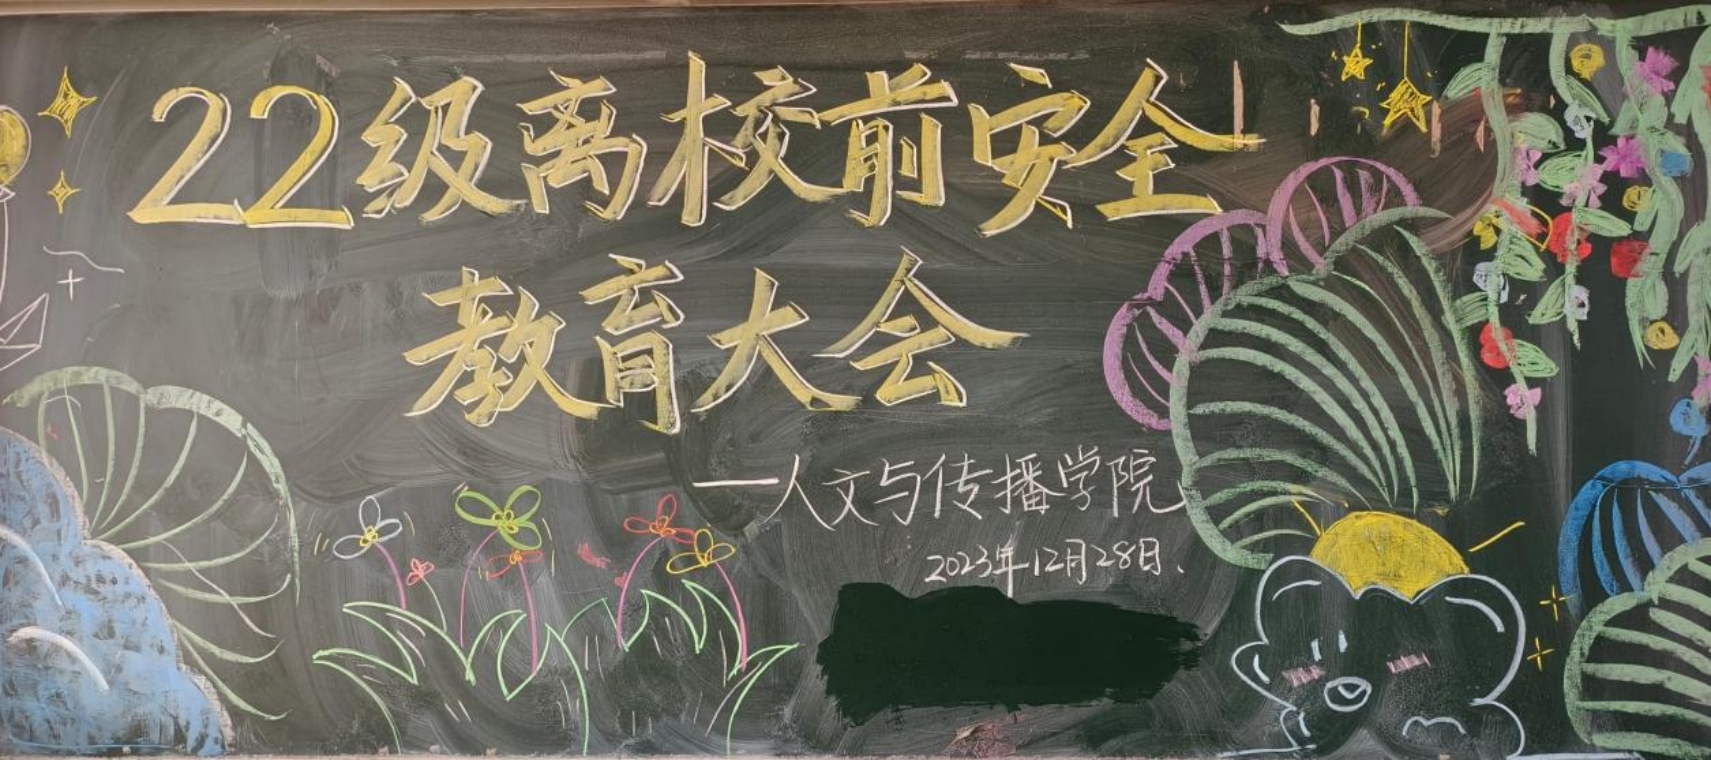 22级离校前安全
教育大会
—人文与传播学院
2023年12月28日.